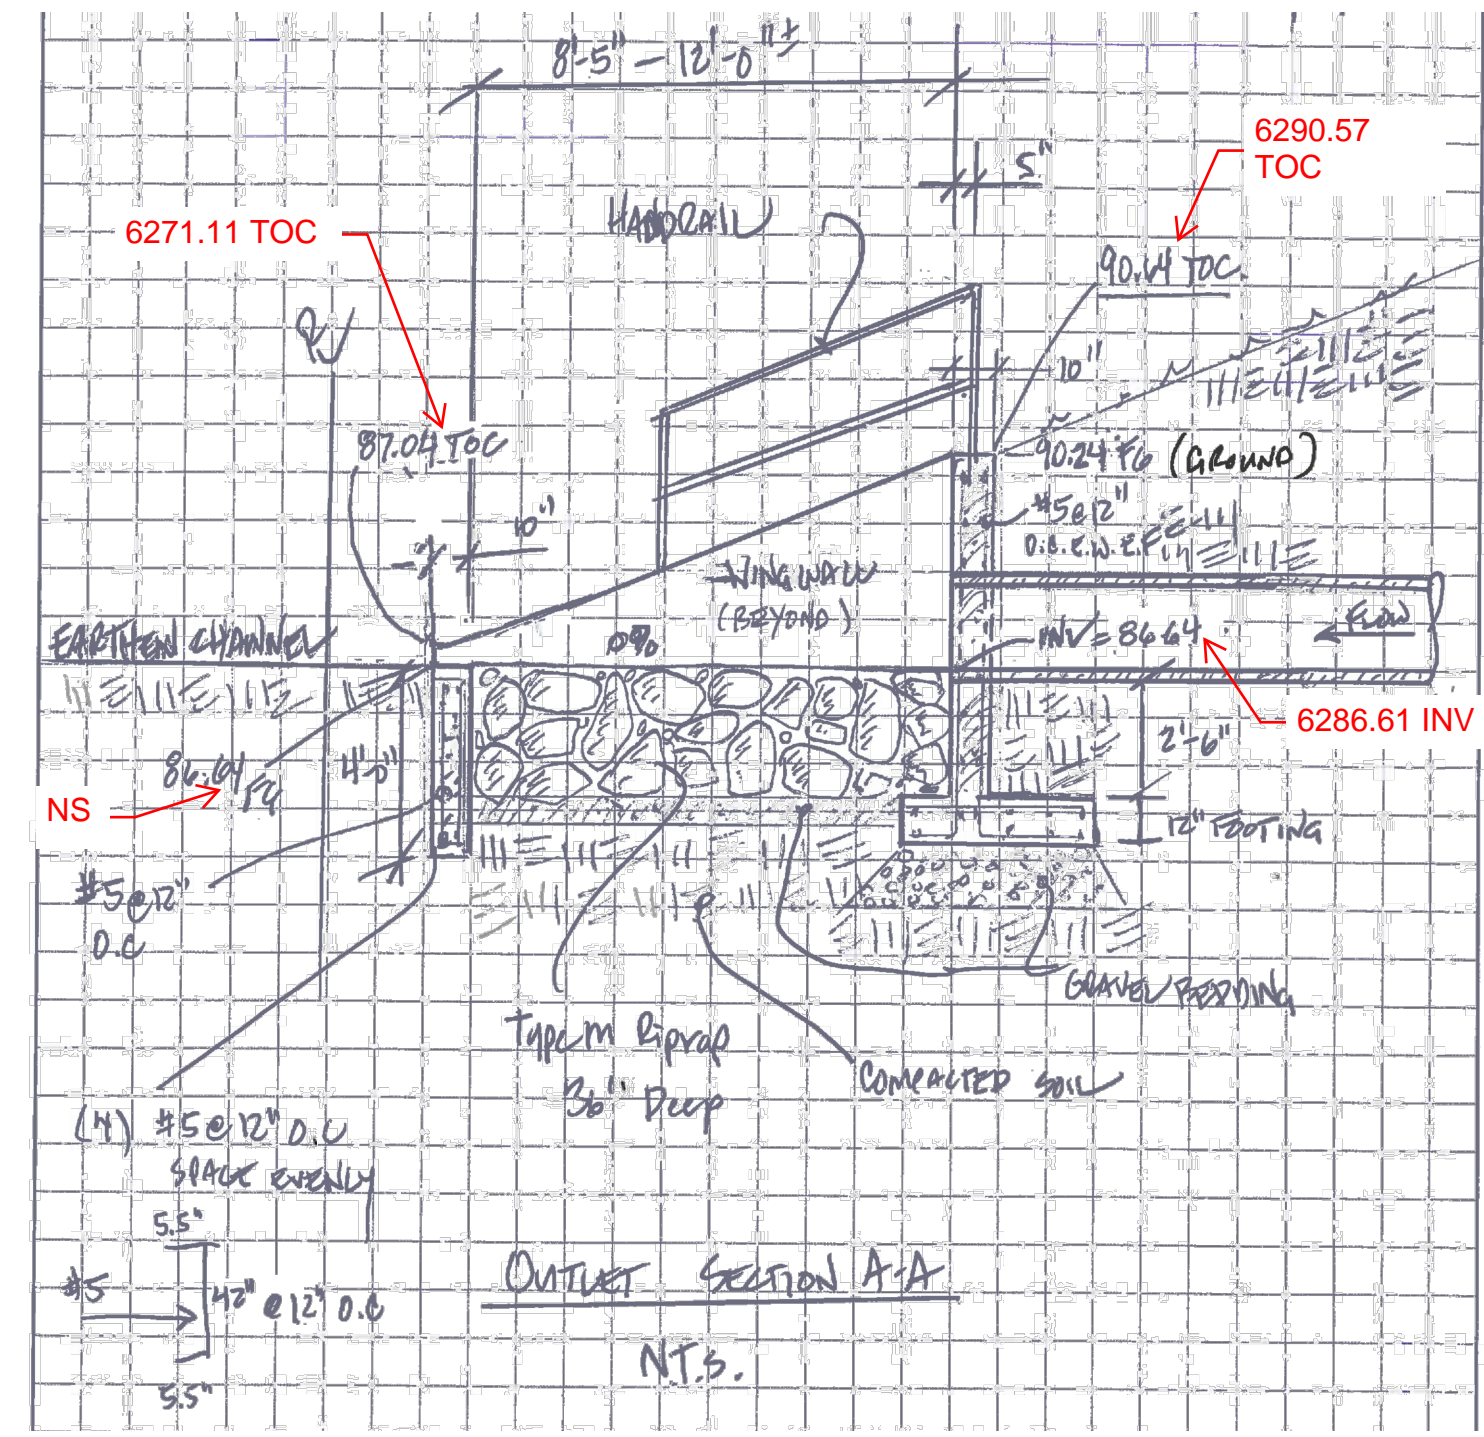 8'-5" - 12'-0"±
5"
6290.57
TOC
HANDRAIL
6271.11 TOC
90.64 TOC
10"
87.04 TOC
90.24 FG (GROUND)
#5@12"
O.C.E.W.E.F
10"
WINGWALL
(BEYOND)
FLOW
EARTHEN CHANNEL
0%
INV = 86.64
6286.61 INV
2'-6"
86.64
FG
4'-0"
NS
12" FOOTING
#5@12"
O.C
GRAVEL BEDDING
Type M Riprap
36" Deep
COMPACTED SOIL
(4) #5@12" O.C
SPACE EVENLY
5.5"
#5
42" @ 12" O.C
5.5"
OUTLET SECTION A-A
N.T.S.